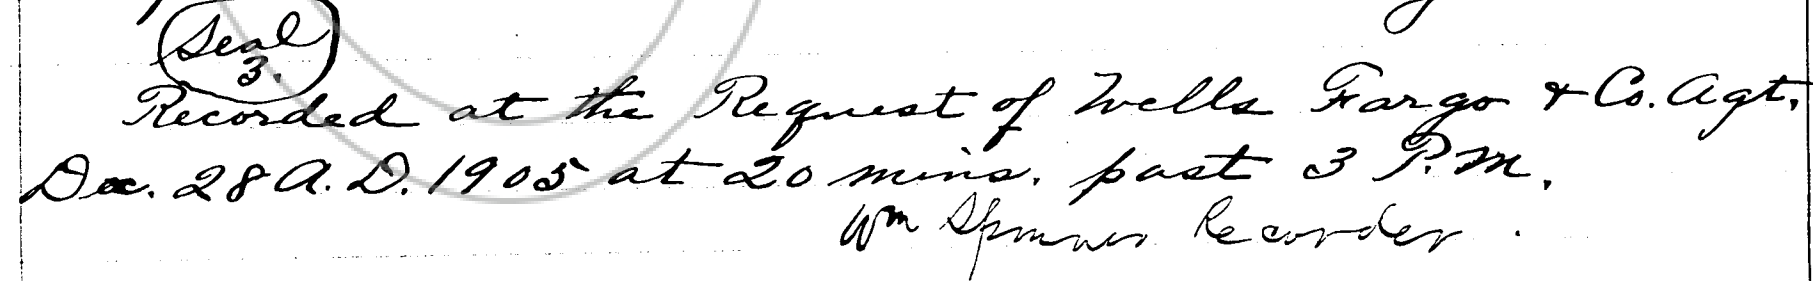 Seal
3.
Recorded at the Request of Wells Fargo & Co. Agt.
Dec. 28 A.D. 1905 at 20 mins. past 3 P.M.
Wm Recorder.